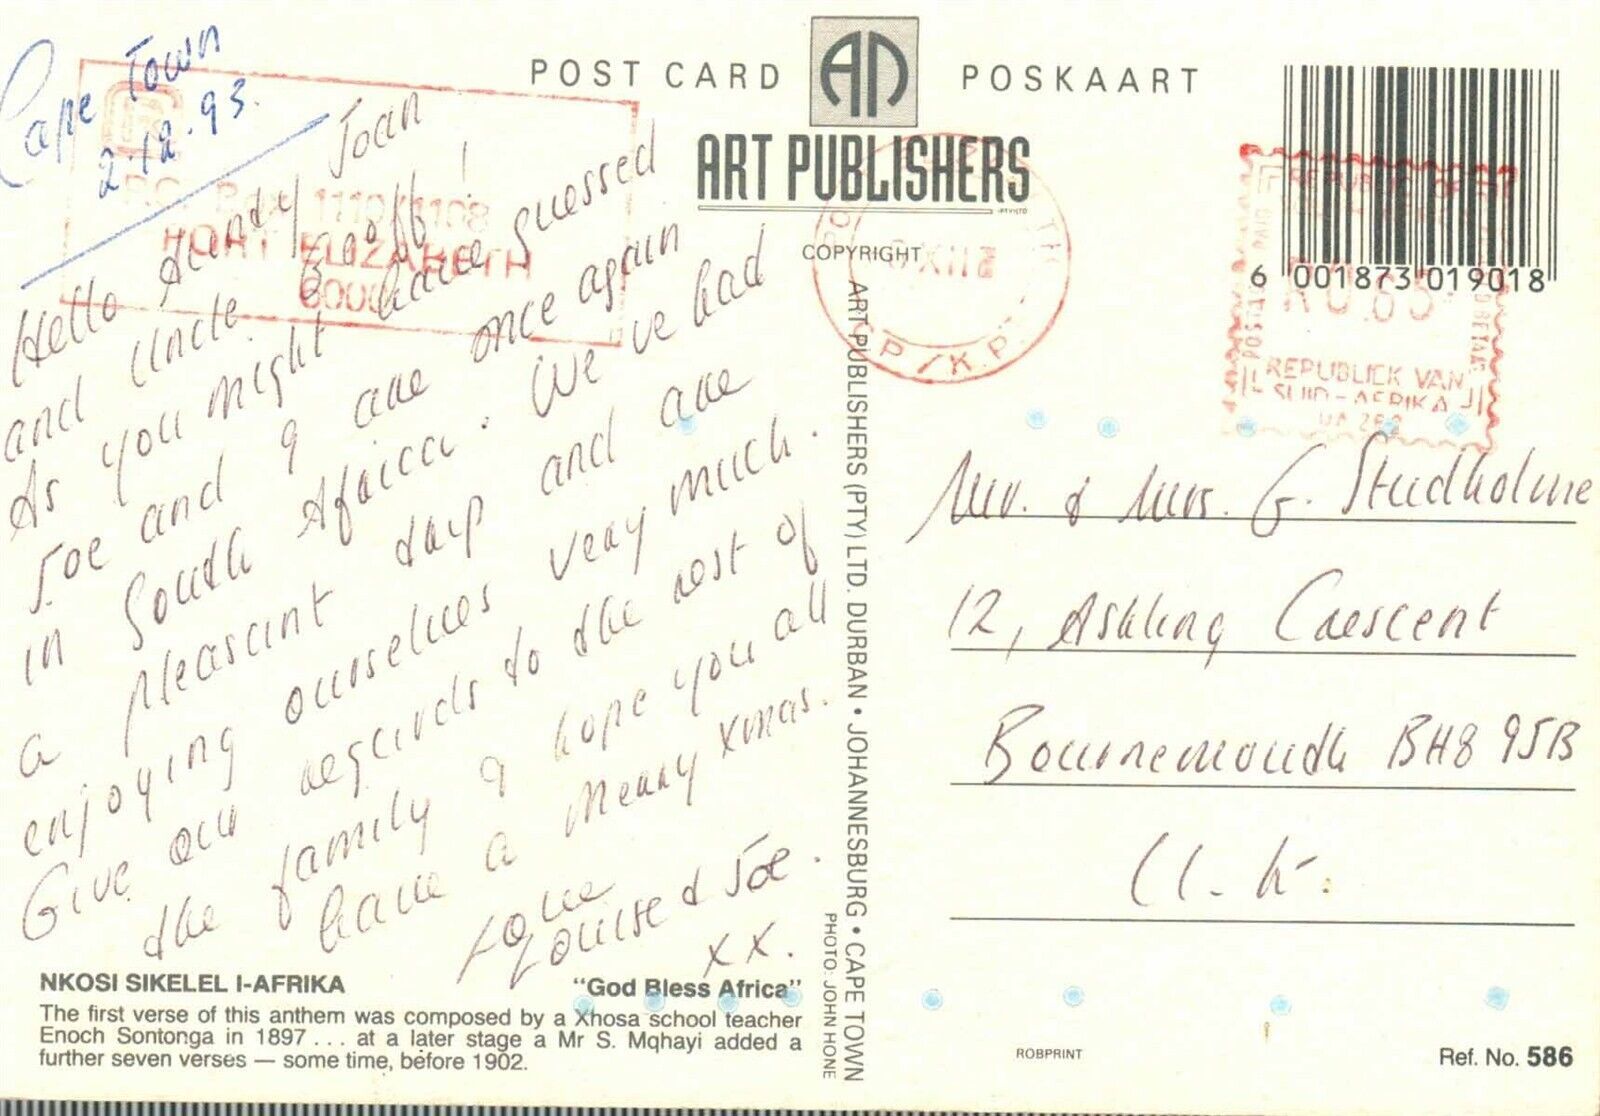 Cape Town
2.12.93.
Hello Aunty Joan
and Uncle Geoff!
As you might have guessed
Joe and I are once again
in South Africa. We've had
a pleasant trip and are
enjoying ourselves very much.
Give our regards to the rest of
the family & hope you all
have a Merry Xmas.
Love
Louise & Joe.
XX.
NKOSI SIKELEL I-AFRIKA "God Bless Africa"
The first verse of this anthem was composed by a Xhosa school teacher
Enoch Sontonga in 1897 ... at a later stage a Mr S. Mqhayi added a
further seven verses — some time, before 1902.
POST CARD POSKAART
ART PUBLISHERS
(PTY) LTD
COPYRIGHT
ART PUBLISHERS (PTY) LTD. DURBAN • JOHANNESBURG • CAPE TOWN
PHOTO: JOHN HONE
PORT ELIZABETH
6000
6 001873 019018
R0.65
REPUBLIEK VAN
SUID-AFRIKA
Mr. & Mrs. G. Studholme
12, Ashling Crescent
Bournemouth BH8 9SB
U.K.
ROBPRINT
Ref. No. 586